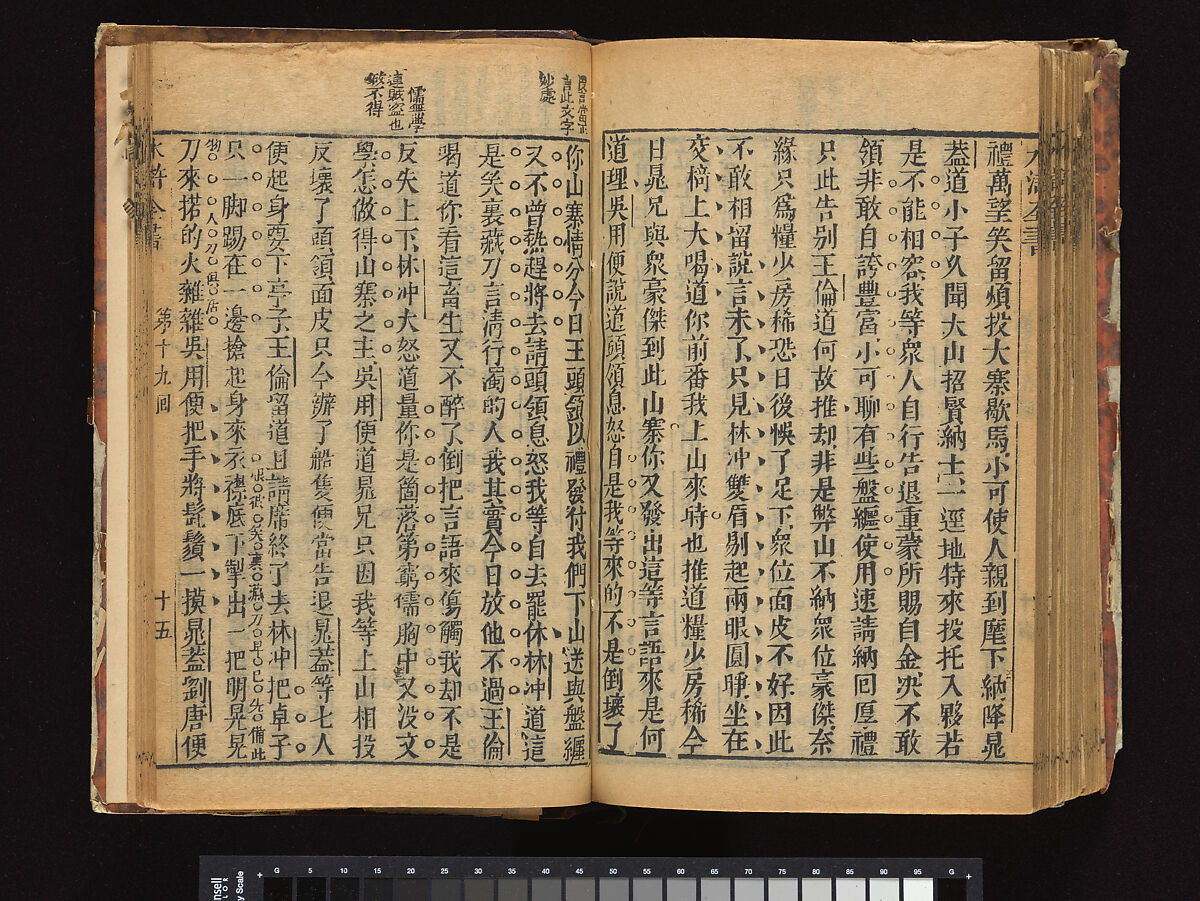 禮萬望笑留煩投大寨歇馬小可使人親到麾下納降晁
蓋道小子久聞大山招賢納士一逕地特來投托入夥若
是不能相容我等衆人自行告退重蒙所賜白金決不敢
領非敢自誇豐富小可聊有些盤纏使用速請納回厚禮
只此告别王倫道何故推却非是弊山不納衆位豪傑奈
緣只爲糧少房稀恐日後悞了足下衆位面皮不好因此
不敢相留說言未了只見林冲雙眉剔起兩眼圓睜坐在
交椅上大喝道你前番我上山來時也推道糧少房稀今
日晁兄與衆豪傑到此山寨你又發出這等言語來是何
道理吳用便說道頭領息怒自是我等來的不是倒壞了
言此文字
妙處
你山寨情分今日王頭領以禮發付我們下山送與盤纏
又不曾熱趕將去請頭領息怒我等自去罷休林冲道這
是笑裏藏刀言清行濁的人我其實今日放他不過王倫
喝道你看這畜生又不醉了倒把言語來傷觸我却不是
儒無學
這賊盜也
做不得
反失上下林冲大怒道量你是箇落第窮儒胸中又没文
學怎做得山寨之主吳用便道晁兄只因我等上山相投
反壞了頭領面皮只今辦了船隻便當告退晁蓋等七人
便起身要下亭子王倫留道且請席終了去林冲把卓子
只一脚踢在一邊搶起身來衣襟底下掣出一把明晃晃
刀來搭的火雜雜吳用便把手將髭鬚一摸晁蓋劉唐便
第十九回
十五
水滸全書